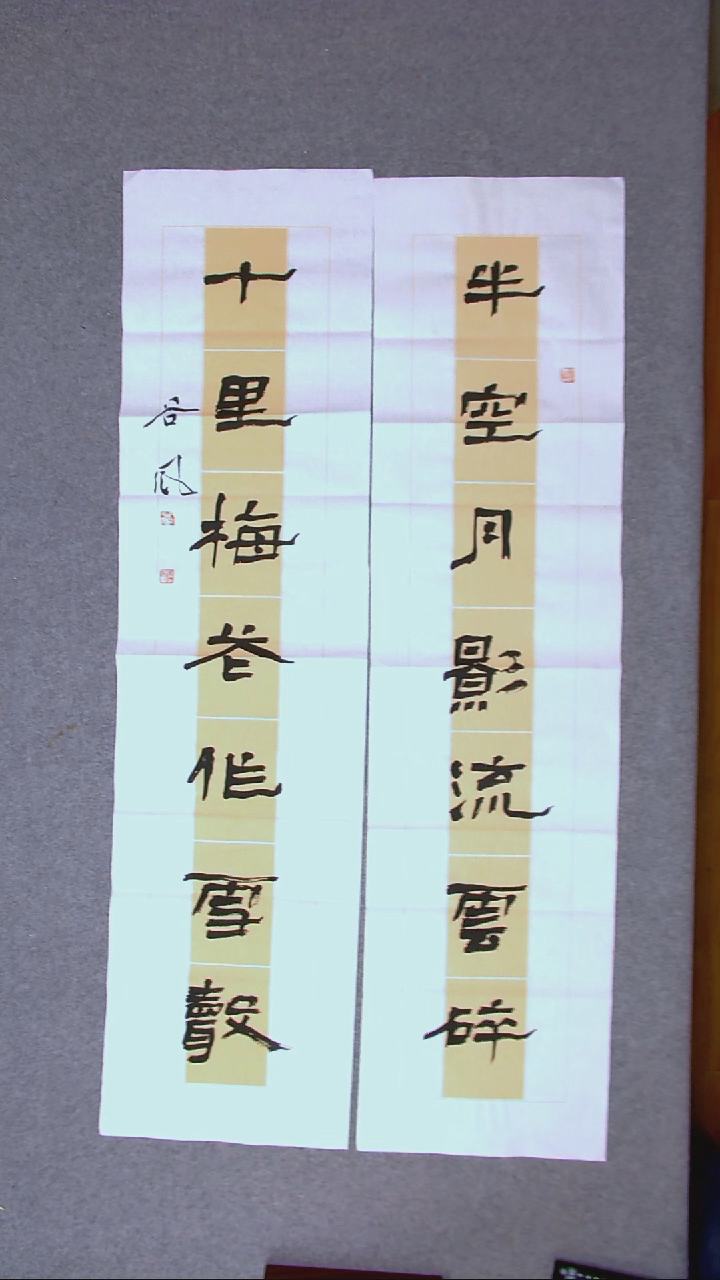 半空月影流雲碎
十里梅花作雪聲
谷风